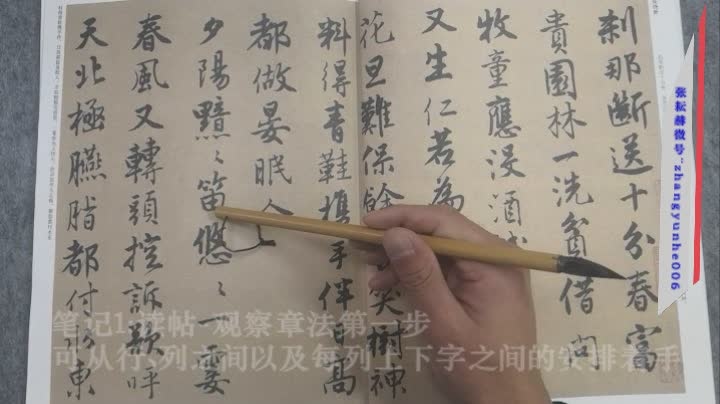 刹那斷送十分春富
貴園林一洗貧借問
牧童應浸酒
又生仁若為
花旦難保餘 笑樹神
料得青鞋攜手伴日高
都做晏眠人
夕陽黯〻笛悠〻一霎
春風又轉頭控訴欲呼
天北極臙脂都付水東
张耘赫微号"zhangyunhe006
笔记1.读帖-观察章法第一步
可从行、列之间以及每列上下字之间的安排着手